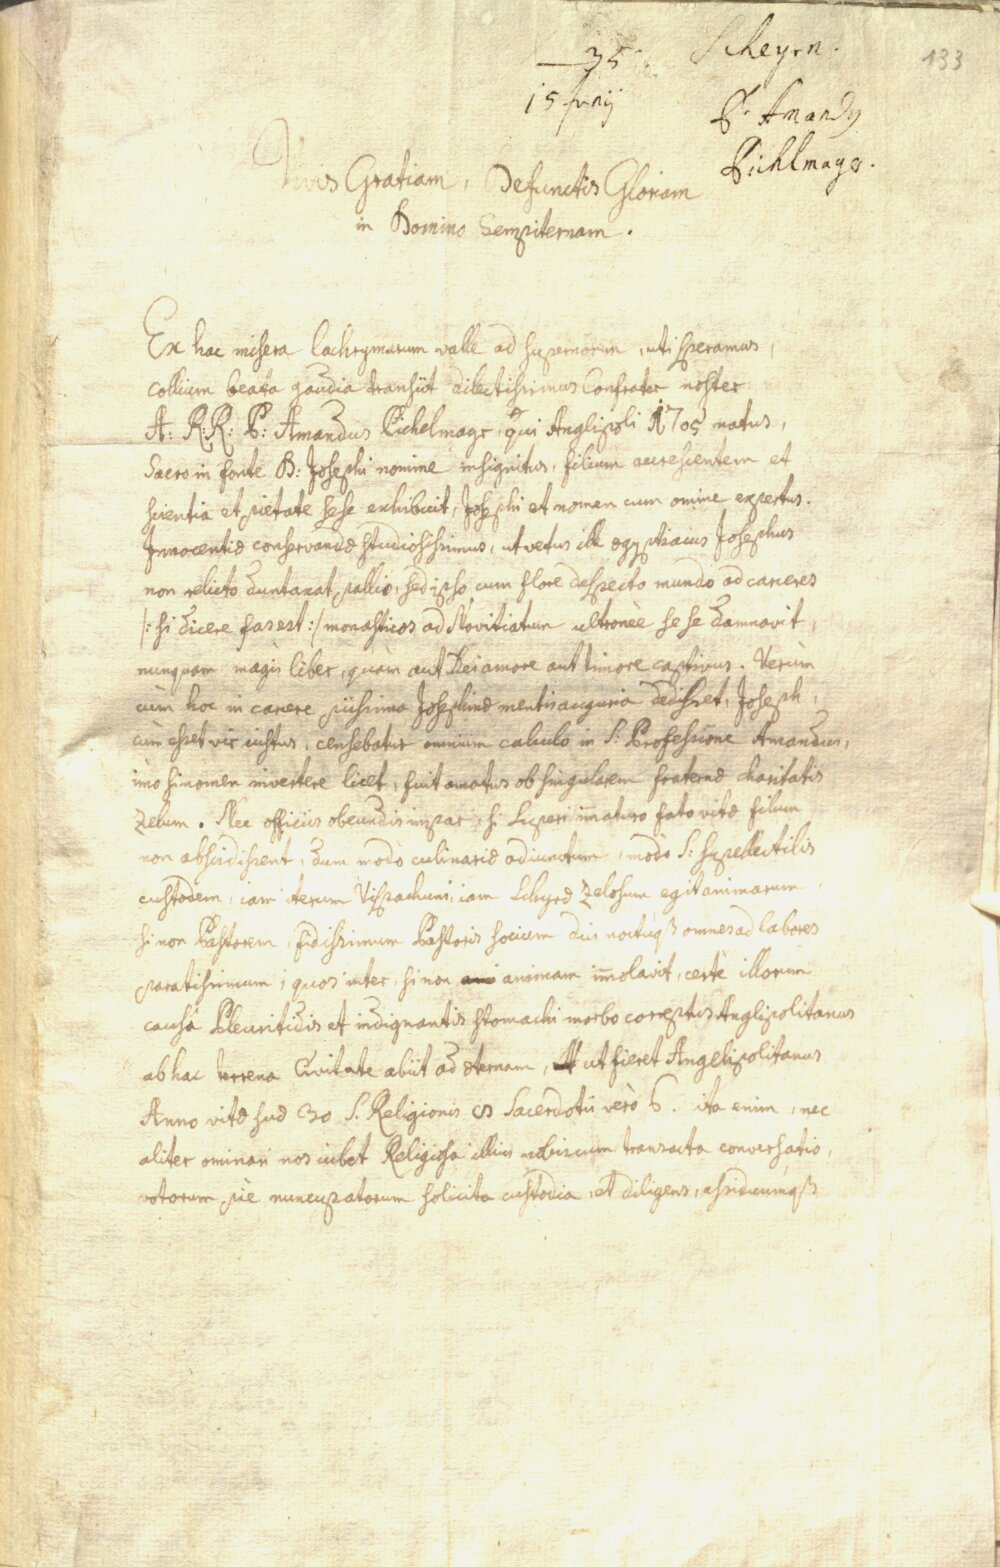 35. Scheyrn. 133
15 Junij P. Amandus
Pichlmayr.
Vivis Gratiam, Defunctis Gloriam
in Domino Sempiternam.
Ex hac misera lachrymarum valle ad supernorum, uti speramus,
collium beata gaudia transijt dilectissimus Confrater noster
A: R: R: P: Amandus Pichelmayr, qui Anglipoli 1705 natus,
Sacro in fonte B: Josephi nomine insignitus, filium accrescentem et
scientia et pietate sese exhibuit, Josephi et nomen cum omine expertus.
Innocentiæ conservandæ studiosissimus, ut vetus ille ægyptiacus Josephus
non relicto duntaxat pallio, sed ipso cum flore despecto mundo ad carceres
/: si dicere fas est :/ monasticos ad Novitiatum ultronèe sese damnavit,
nunquam magis liber, quàm aut Dei amore aut timore captivus. Verùm
cùm hoc in carcere piissima Josephinæ mentis auguria dedisset, Joseph,
cùm esset vir iustus, censebatur omnium calculo in S. Professione Amandus,
imò si nomen invertere licet, fuit amatus ob singularem fraternæ charitatis
zelum. Nec officiis obeundis impar, si Superi immaturo fato vitæ filum
non abscidissent, dum modò culinariæ adiunctum, modò S: supellectilis
custodem, iam iterum Vispachij, iam Schyræ zelosum egit animarum,
si non Pastorem, fidissimum Pastoris socium diu noctuq3 omnes ad labores
paratissimum; quos inter, si non animam immolavit, certè illorum
causâ Pleuritidis et indignantis stomachi morbo correptus Anglipolitanus
ab hac terrena Civitate abiit ad æternam, ut fieret Angelipolitanus
Anno vitæ suæ 30 S. Religionis Sacerdotii verò 6. ita enim, nec
aliter ominari nos iubet Religiosa illius nobiscum transacta conversatio,
votorum piè nuncupatorum solicita custodia, et diligens, assiduumq3